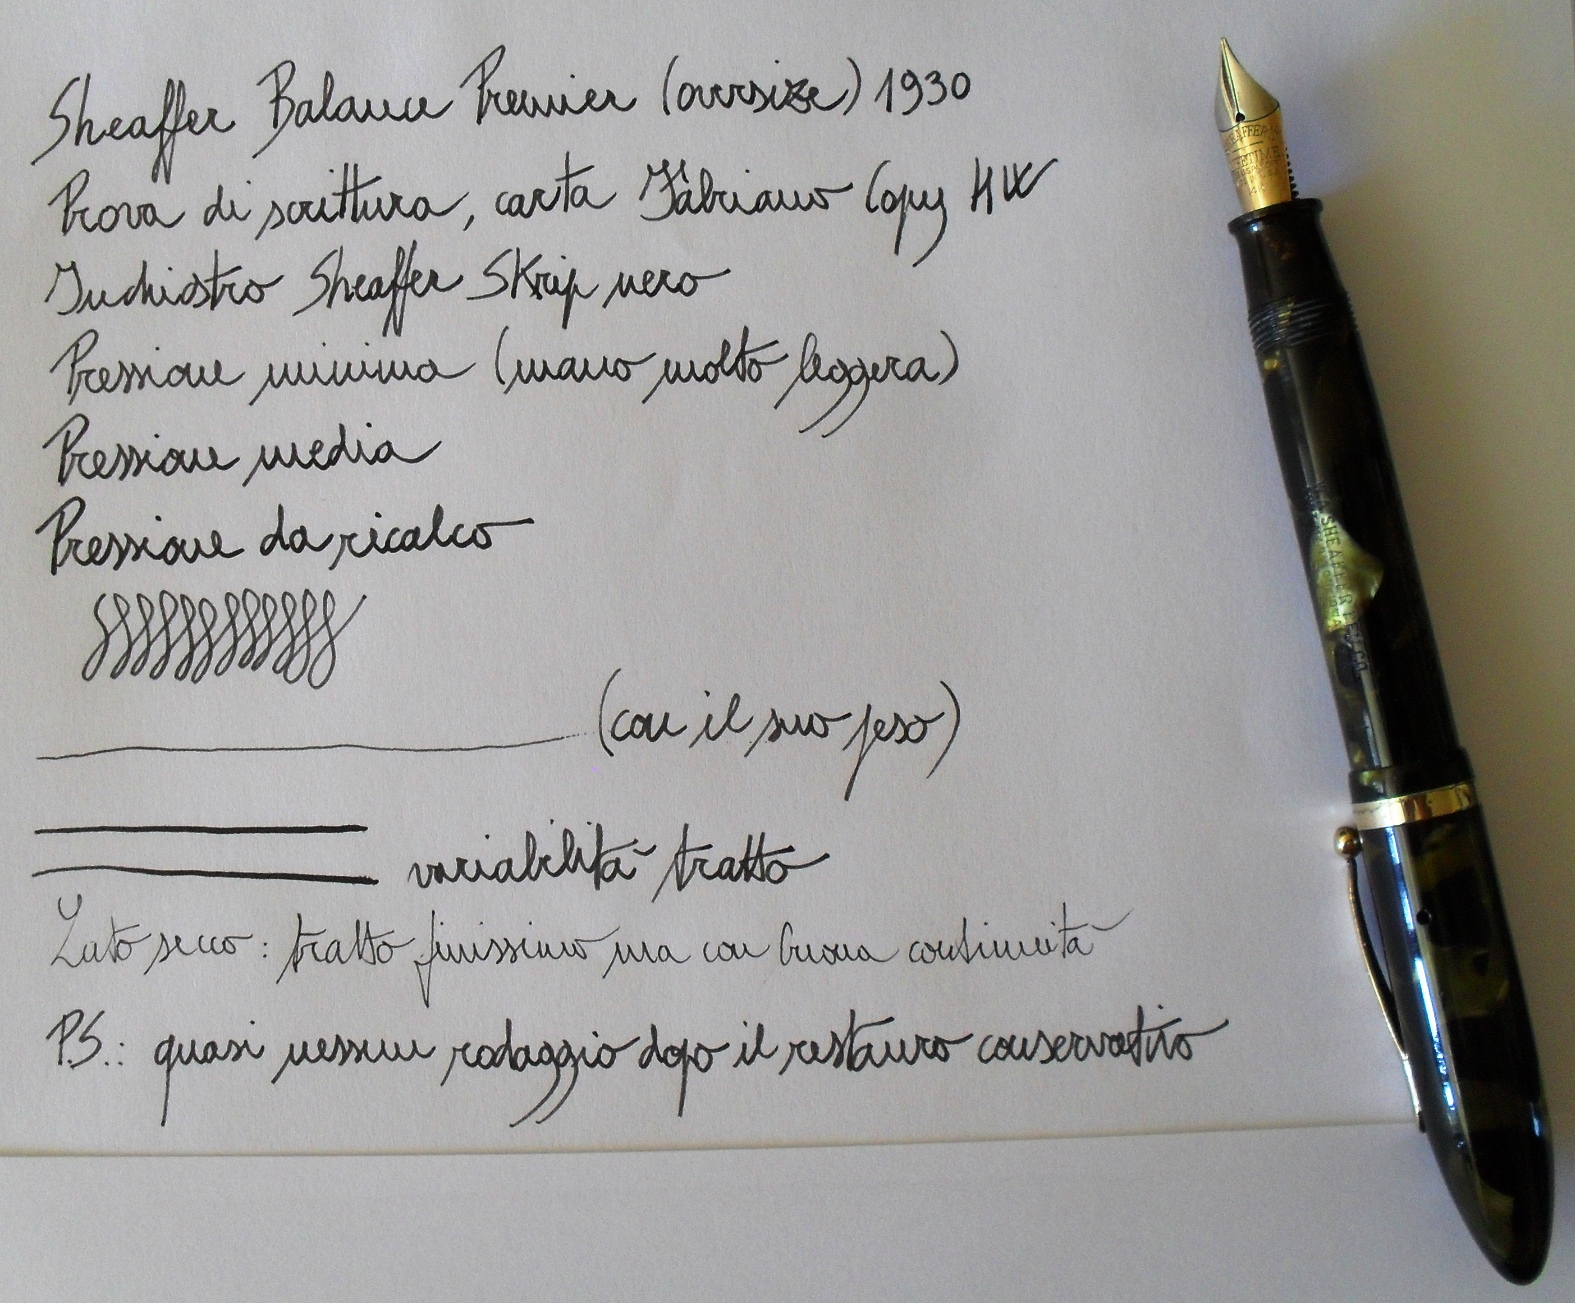 Sheaffer Balance Premier (oversize) 1930
Prova di scrittura, carta Fabriano Copy HW
Inchiostro Sheaffer Skrip nero
Pressione minima (mano molto leggera)
Pressione media
Pressione da ricalco
(con il suo peso)
variabilità tratto
Lato secco: tratto finissimo ma con buona continuità
P.S.: quasi nessun rodaggio dopo il restauro conservativo
SHEAFFER'S
SHEAFFER PEN CO.